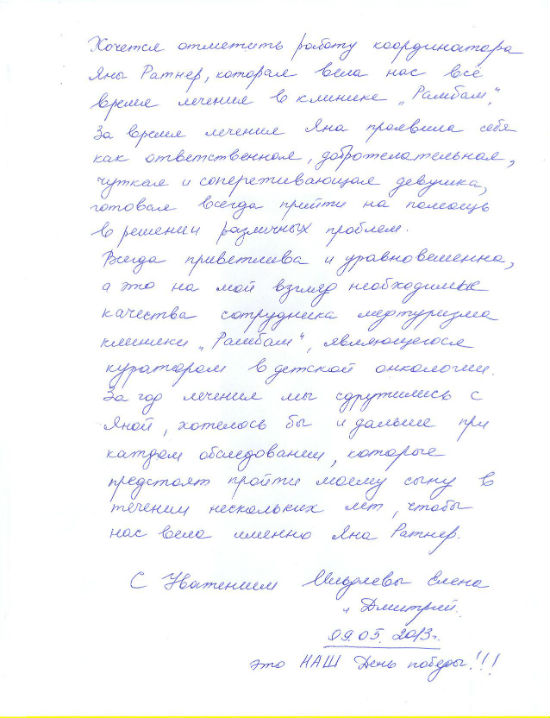 Хочется отметить работу координатора
Яны Ратнер, которая вела нас всё
время лечения в клинике „Рамбам".
За время лечения Яна проявила себя
как ответственная, доброжелательная,
чуткая и сопереживающая девушка,
готовая всегда прийти на помощь
в решении различных проблем.
Всегда приветлива и уравновешенна,
а это на мой взгляд необходимые
качества сотрудника медтуризма
клиники „Рамбам", являющегося
куратором в детской онкологии.
За год лечения мы сдружились с
Яной, хотелось бы и дальше при
каждом обследовании, которые
предстоят пройти моему сыну в
течении нескольких лет, чтобы
нас вела именно Яна Ратнер.
С Уважением Елена
и Дмитрий.
09.05.2013г.
это НАШ День победы!!!